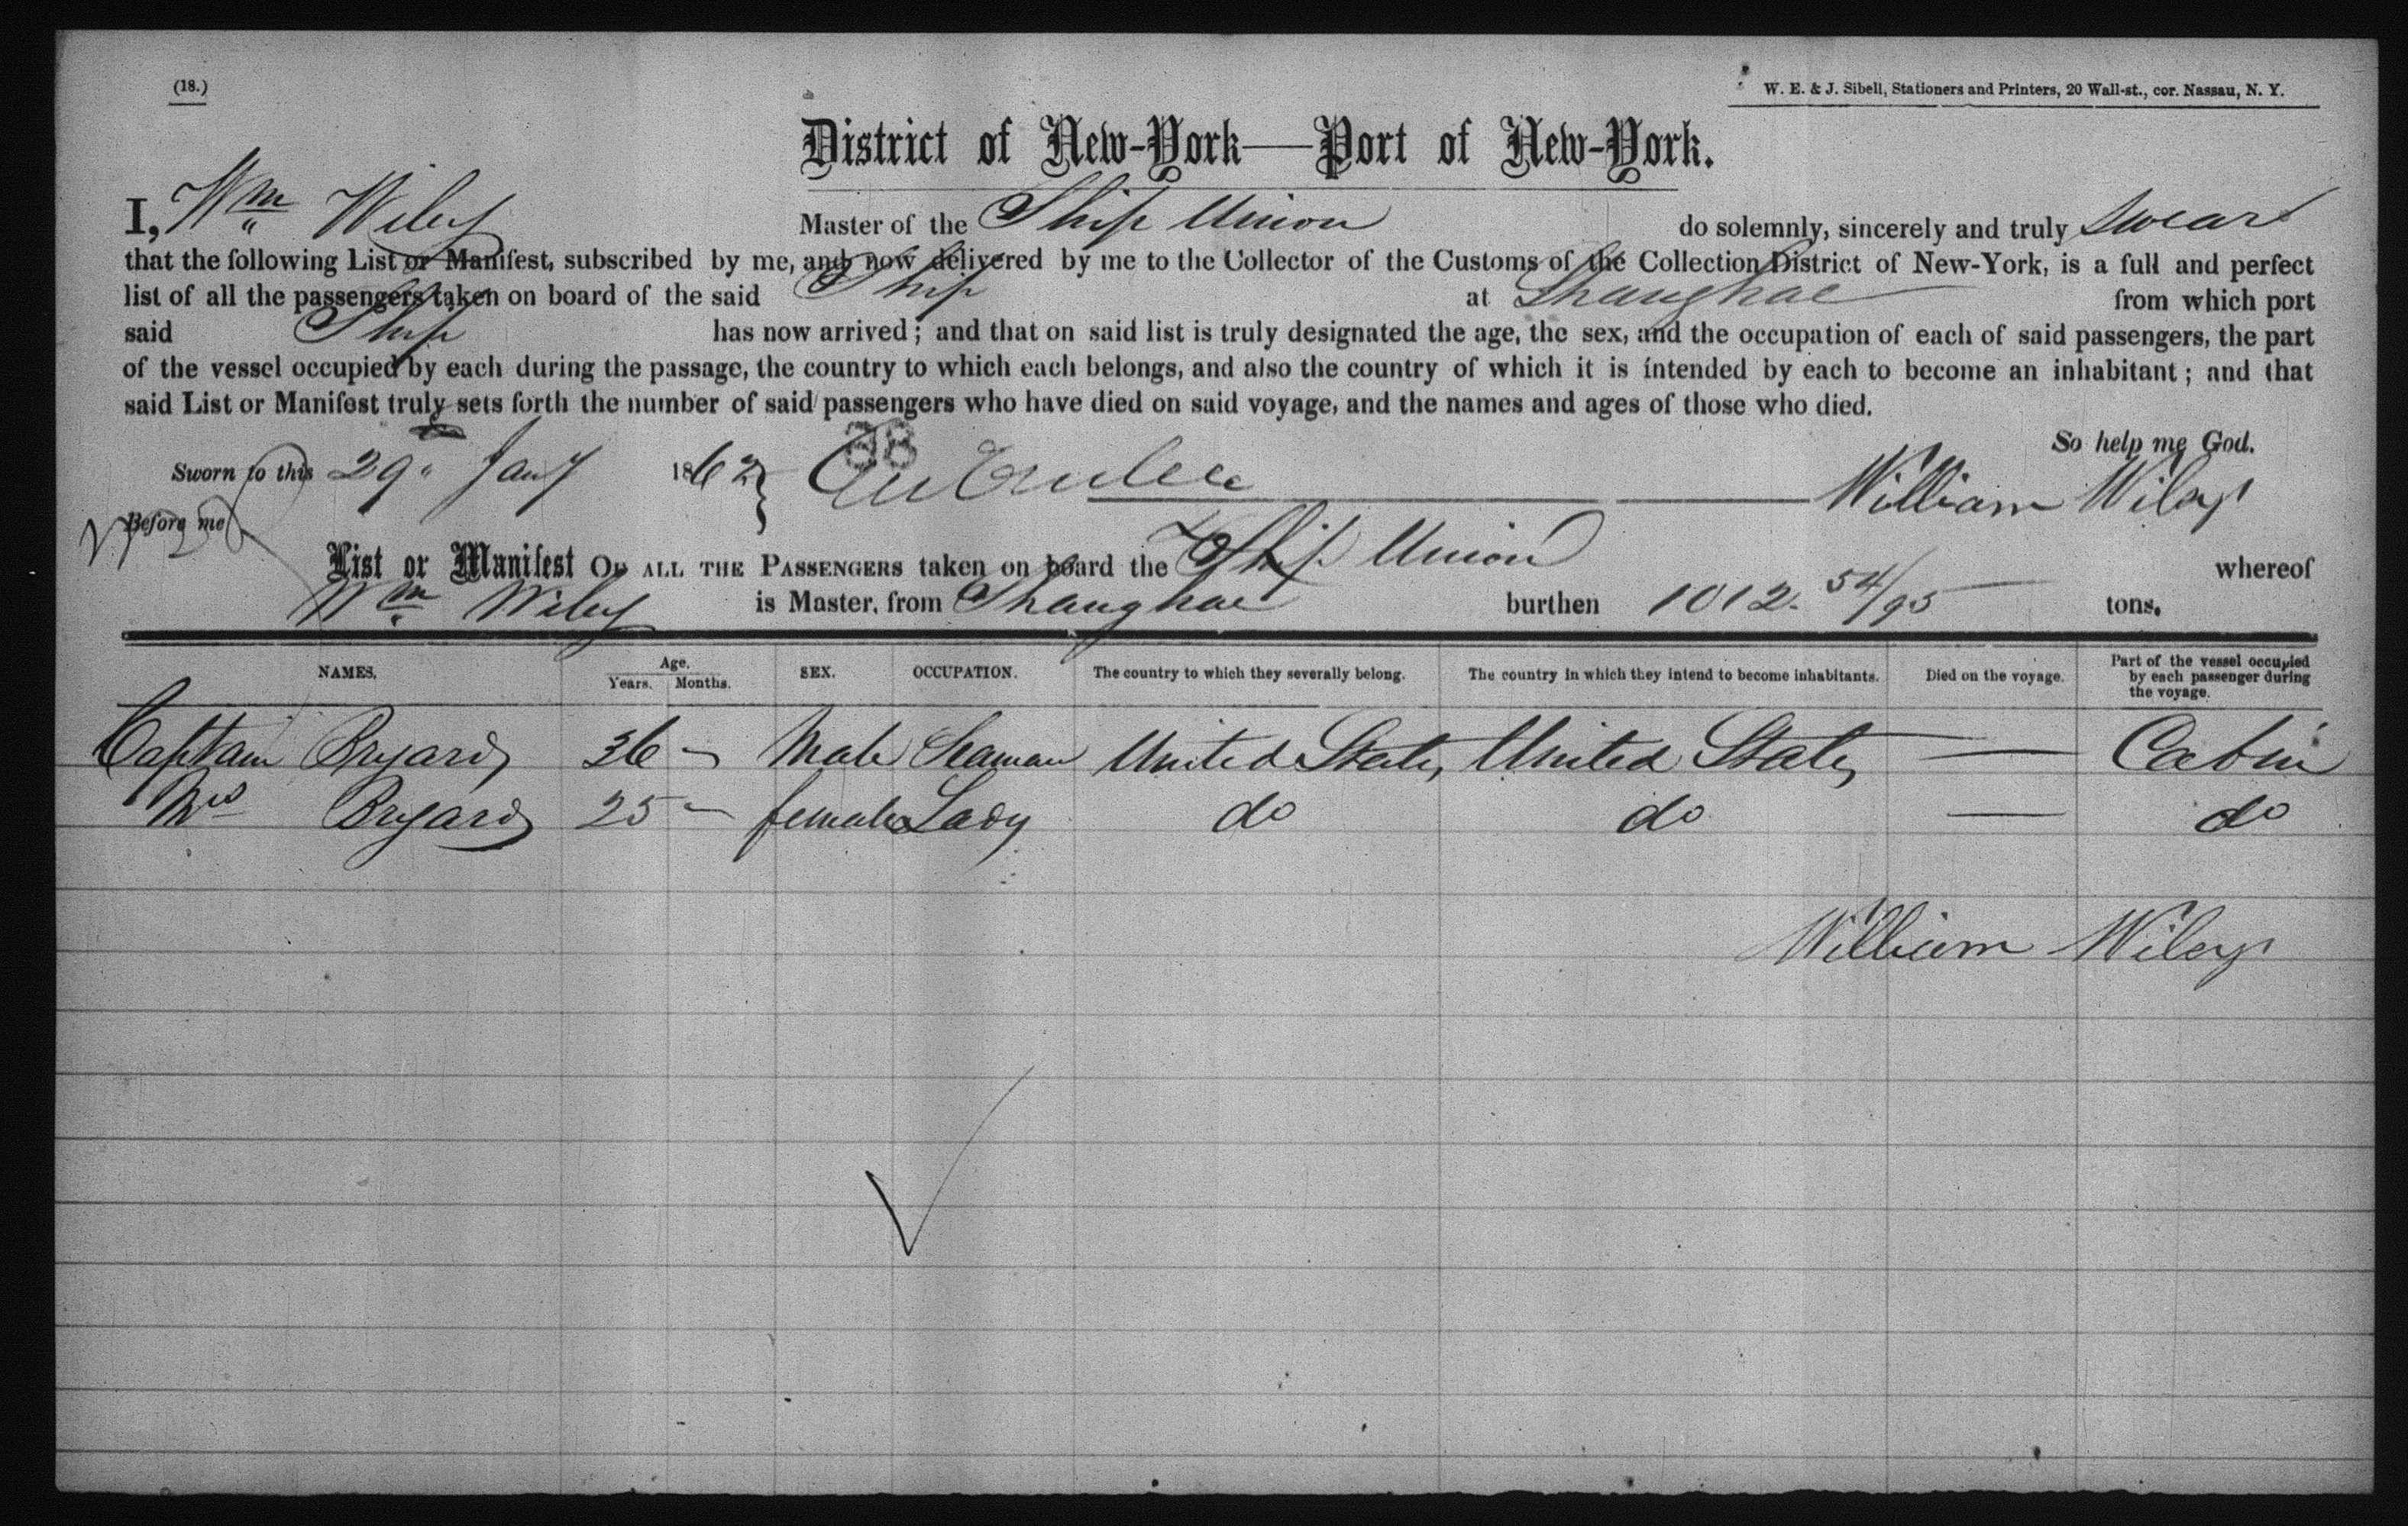 (18.)
W. E. & J. Sibell, Stationers and Printers, 20 Wall-st., cor. Nassau, N. Y.
District of New-York—Port of New-York.
I, Wm Wiley Master of the Ship Union do solemnly, sincerely and truly swear
that the following List or Manifest, subscribed by me, and now delivered by me to the Collector of the Customs of the Collection District of New-York, is a full and perfect
list of all the passengers taken on board of the said Ship at Shanghae from which port
said Ship has now arrived; and that on said list is truly designated the age, the sex, and the occupation of each of said passengers, the part
of the vessel occupied by each during the passage, the country to which each belongs, and also the country of which it is intended by each to become an inhabitant; and that
said List or Manifest truly sets forth the number of said passengers who have died on said voyage, and the names and ages of those who died.
So help me God.
Sworn to this 29" Jany 1862 38 William Wiley
Before me
List or Manifest OF ALL THE PASSENGERS taken on board the Ship Union whereof
Wm Wiley is Master, from Shanghae burthen 1012. 54/95 tons.
NAMES. Age. Years. Months. SEX. OCCUPATION. The country to which they severally belong. The country in which they intend to become inhabitants. Died on the voyage. Part of the vessel occupied by each passenger during the voyage.
Captain Bryard 36 — Male Seaman United States United States — Cabin
Mrs Bryard 25 — female Lady do do — do
William Wiley